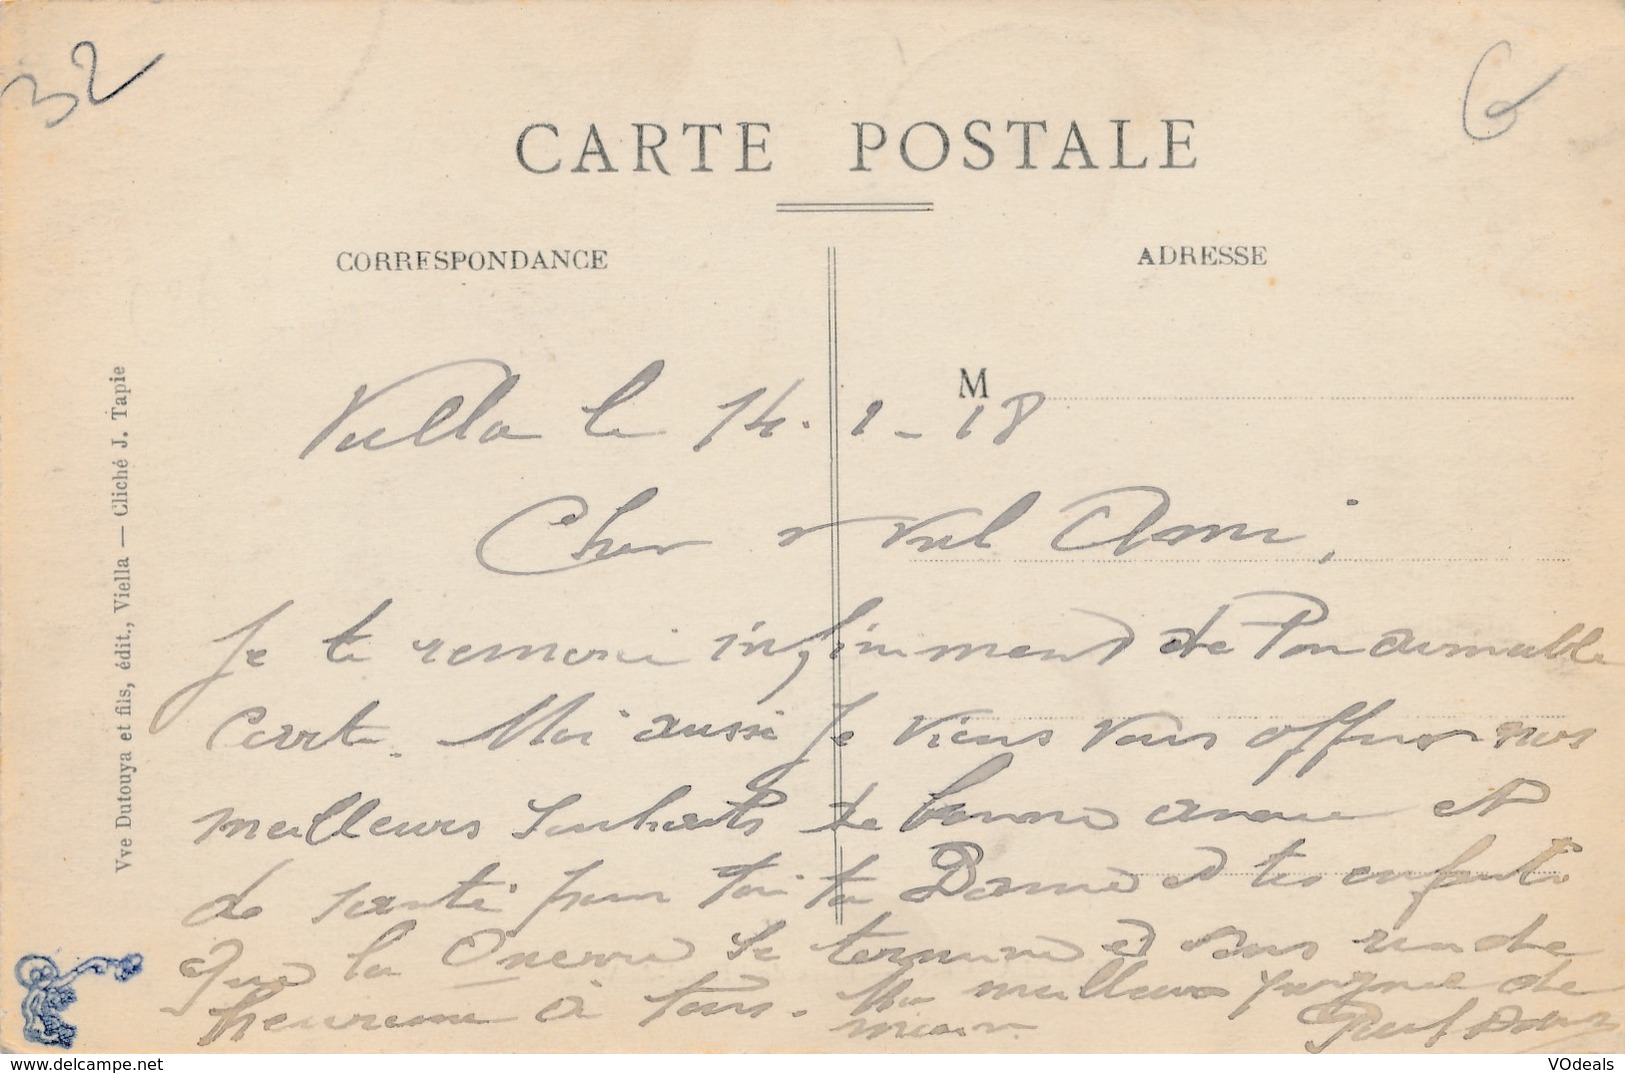 32
6
CARTE POSTALE
CORRESPONDANCE
ADRESSE
M
Vve Dutouya et fils, édit., Viella — Cliché J. Tapie
Viella le 14-1-18
Cher Ami,
Je te remercie infiniment de ton aimable
Carte. Moi aussi je viens vous offrir mes
meilleurs souhaits de bonne année et
de santé pour toi ta Dame et tes enfants
Que la Guerre se termine et vous rende
heureux à tous. Ma meilleure poignée de
main. Paul
VOdeals